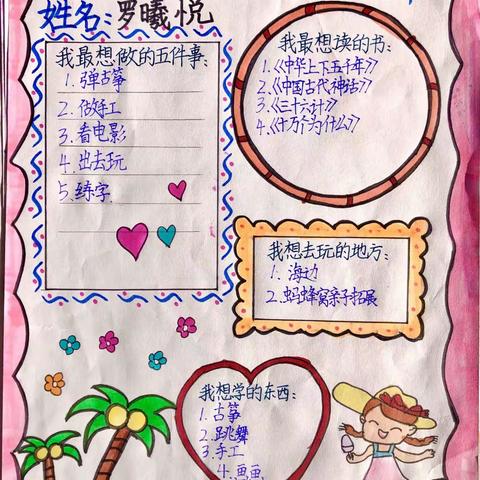 姓名:罗曦悦
我最想做的五件事:
1.弹古筝
2.做手工
3.看电影
4.出去玩
5.练字
我最想读的书:
1.《中华上下五千年》
2.《中国古代神话》
3.《三十六计》
4.《十万个为什么》
我想去玩的地方:
1.海边
2.蚂蜂窝亲子拓展
我想学的东西:
1.古筝
2.跳舞
3.手工
4.画画